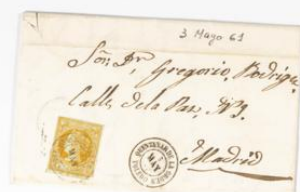 3 Mayo 61
Sōn. Dn. Gregorio Rodrigz.
Calle de la Paz, Nº 3
Madrid